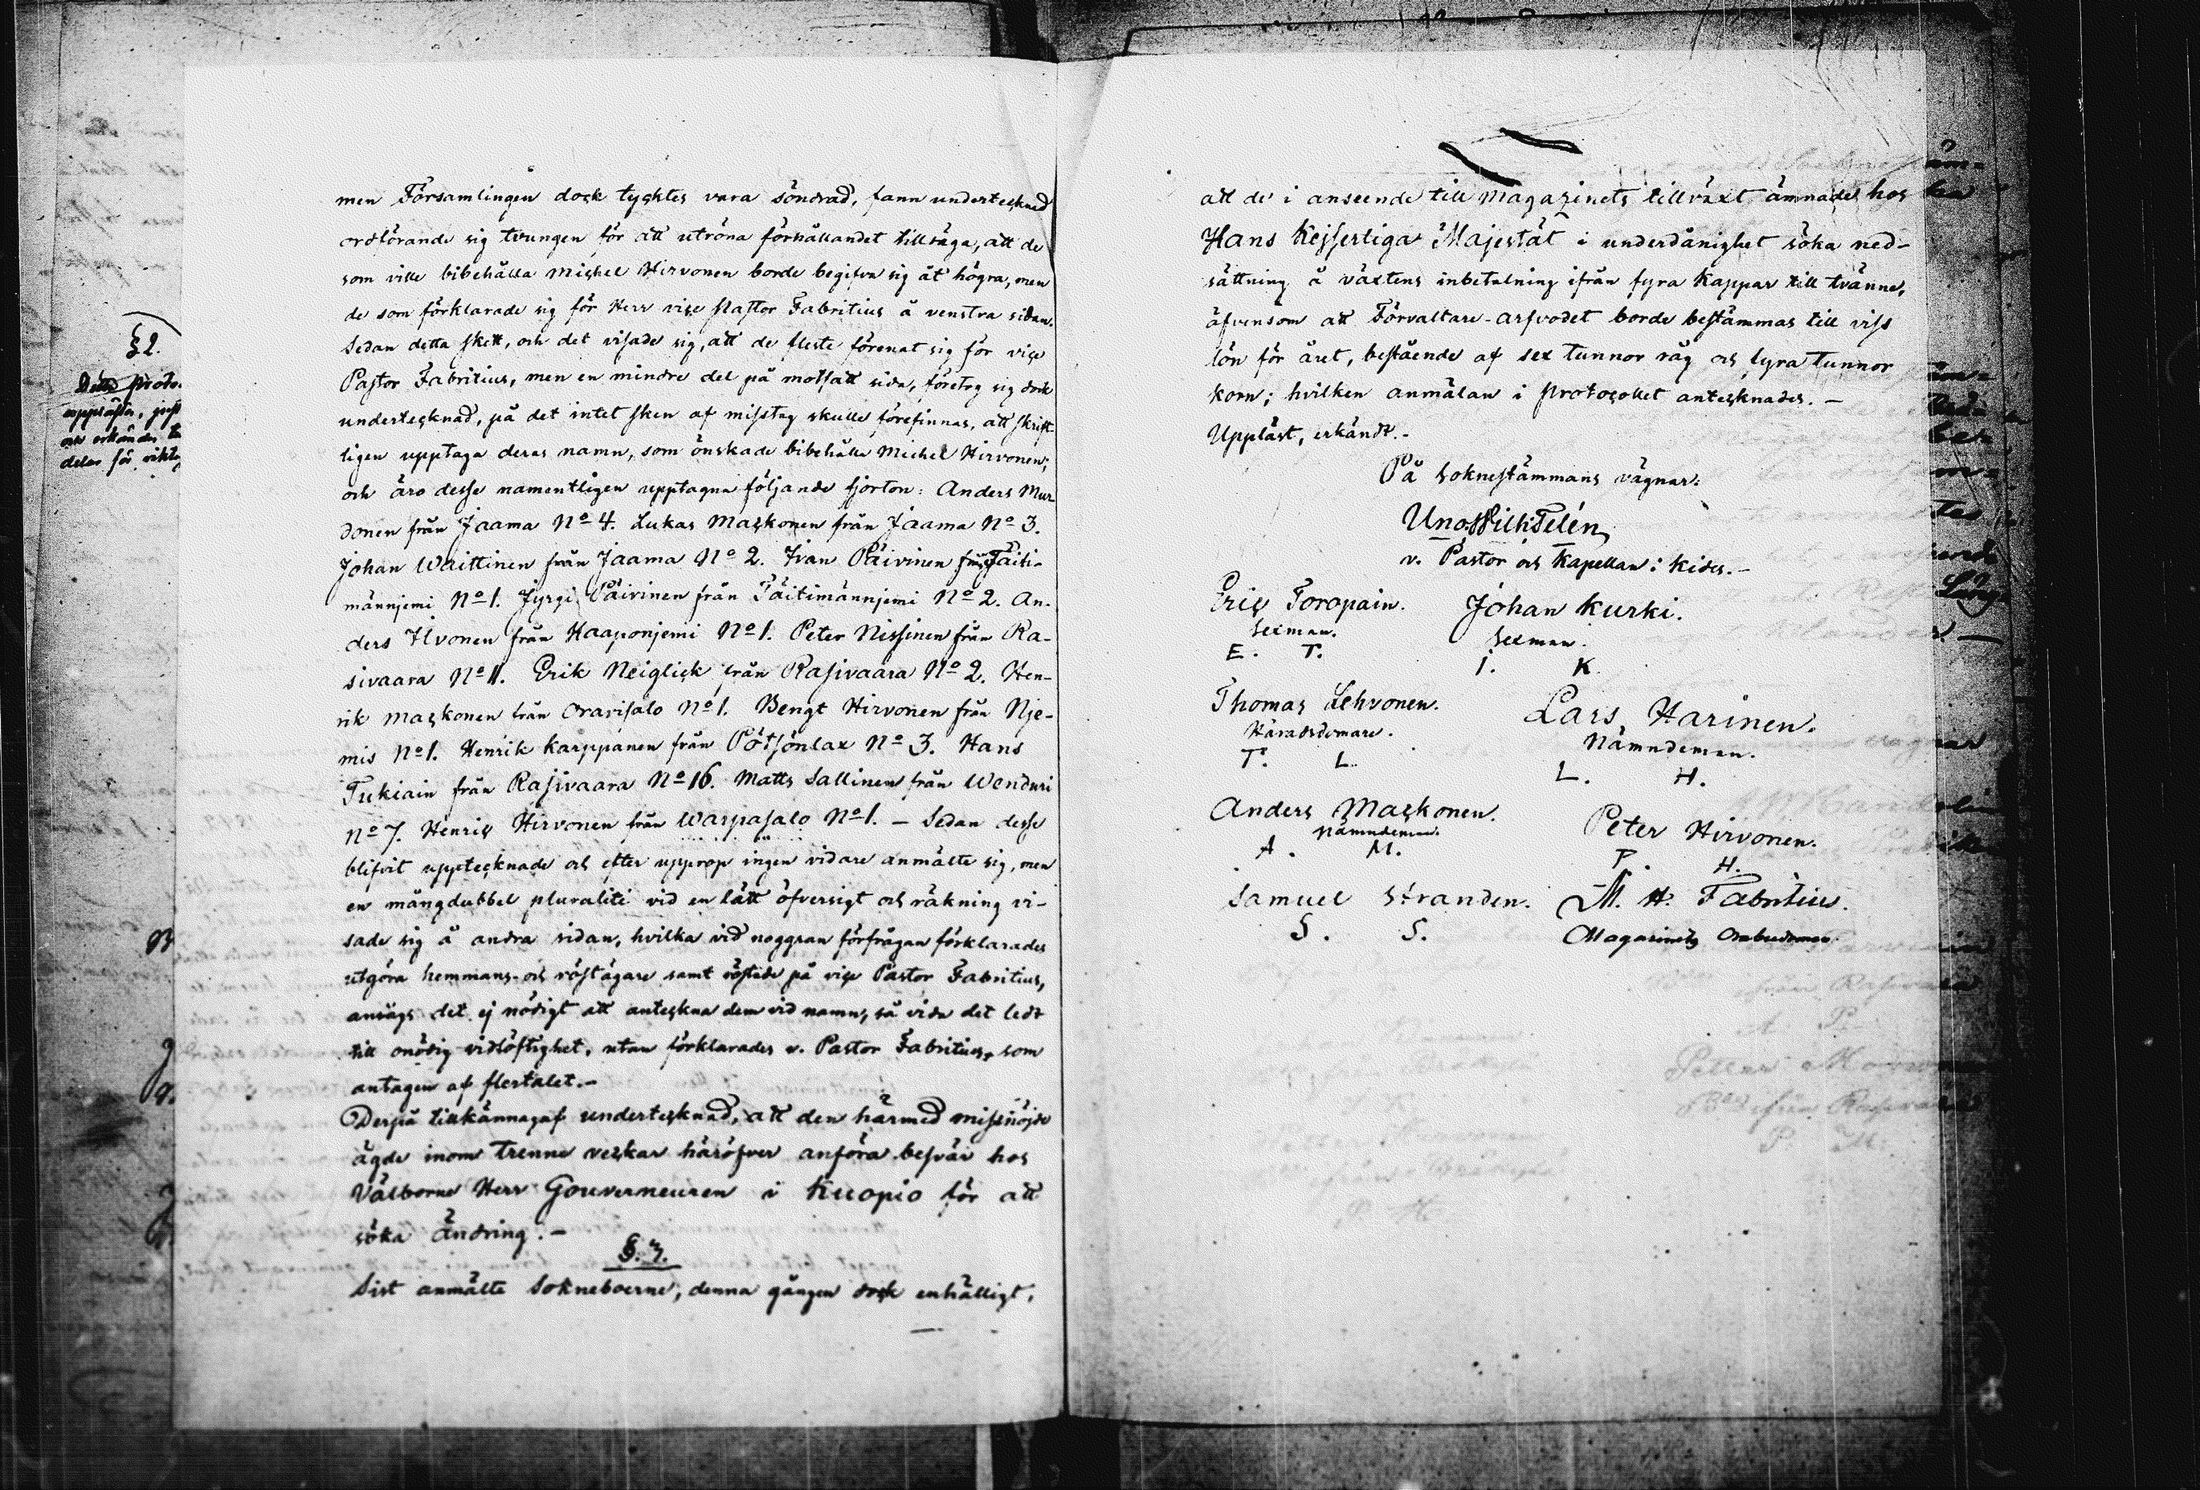 men Församlingen dock tycktes vara söndrad, fann undertecknad
ordförande sig tvungen för att utröna förhållandet tillsäga, att de
som ville bibehålla Michel Hirvonen borde begifva sig åt högra, men
de som förklarade sig för Herr vice Pastor Fabritius å venstra sidan.
Sedan detta skett, och det visade sig, att de fleste förenat sig för vice
Pastor Fabritius, men en mindre del på motsatt sida, företog sig dock
undertecknad, på det intet sken af misstag skulle förefinnas, att skrift-
ligen upptaga deras namn, som önskade bibehålla Michel Hirvonen;
och äro desse namentligen upptagna följande fjorton: Anders Mur-
donen från Jaama No 4. Lukas Mackonen från Jaama No 3.
Johan Waittinen från Jaama No 2. Ivan Päivinen från Täiti-
männjemi No 1. Jyrgi Päivinen från Täitimännjemi No 2. An-
ders Ilvonen från Haaponjemi No 1. Peter Nissinen från Ra-
sivaara No 11. Erik Neiglick från Rasivaara No 2. Hen-
rik Mackonen från Oravisalo No 1. Bengt Hirvonen från Nje-
mis No 1. Henrik Karppanen från Pötsönlax No 3. Hans
Tukiain från Rasivaara No 16. Matts Sallinen från Wenduri
No 7. Henric Hirvonen från Warpasalo No 1. — Sedan desse
blifvit uppteknade och efter upprop ingen vidare anmälte sig, men
en mångdubbel pluralité vid en lätt öfversigt och räkning vi-
sade sig å andra sidan, hvilka vid noggran förfrågan förklarades
utgöra hemmans- och röstägare samt röstade på vice Pastor Fabritius,
ansågs det ej nödigt att anteckna dem vid namn, så vida det ledt
till onödig vidlöftighet, utan förklarades v. Pastor Fabritius, som
antagen af flertalet.—
Derpå tillkännagaf undertecknad, att den härmed missnöjde
ägde inom trenne veckor häröfver anföra besvär hos
Välborne Herr Gouverneuren i Kuopio för att
söka ändring.—
§. 3.
Sist anmälte Sokneboerne, denna gången dock enhälligt,
§ 2.
att de i anseende till Magazinets tillväxt ämnade hos
Hans Kejserliga Majestät i underdånighet söka ned-
sättning å växtens inbetalning ifrån fyra Kappar till tvänne,
äfvensom att Förvaltare-arfvodet borde bestämmas till viss
lön för året, bestående af sex tunnor råg och fyra tunnor
korn; hvilken anmälan i Protocollet antecknades.—
Uppläst, erkändt.—
På Soknestämmans vägnar:
Uno Wilh Telén,
v. Pastor och Kapellan i Kides.—
Eric Toropain. Johan Kurki.
Sexman. Sexman.
E. T. I. K.
Thomas Lehvonen. Lars Harinen.
Häradsdomare. Nämndeman.
T. L. L. H.
Anders Mackonen. Peter Hirvonen.
Nämndeman.
A. M. P. H.
Samuel Stranden. M. H. Fabritius.
S. S. Magasinets Ombudsman.